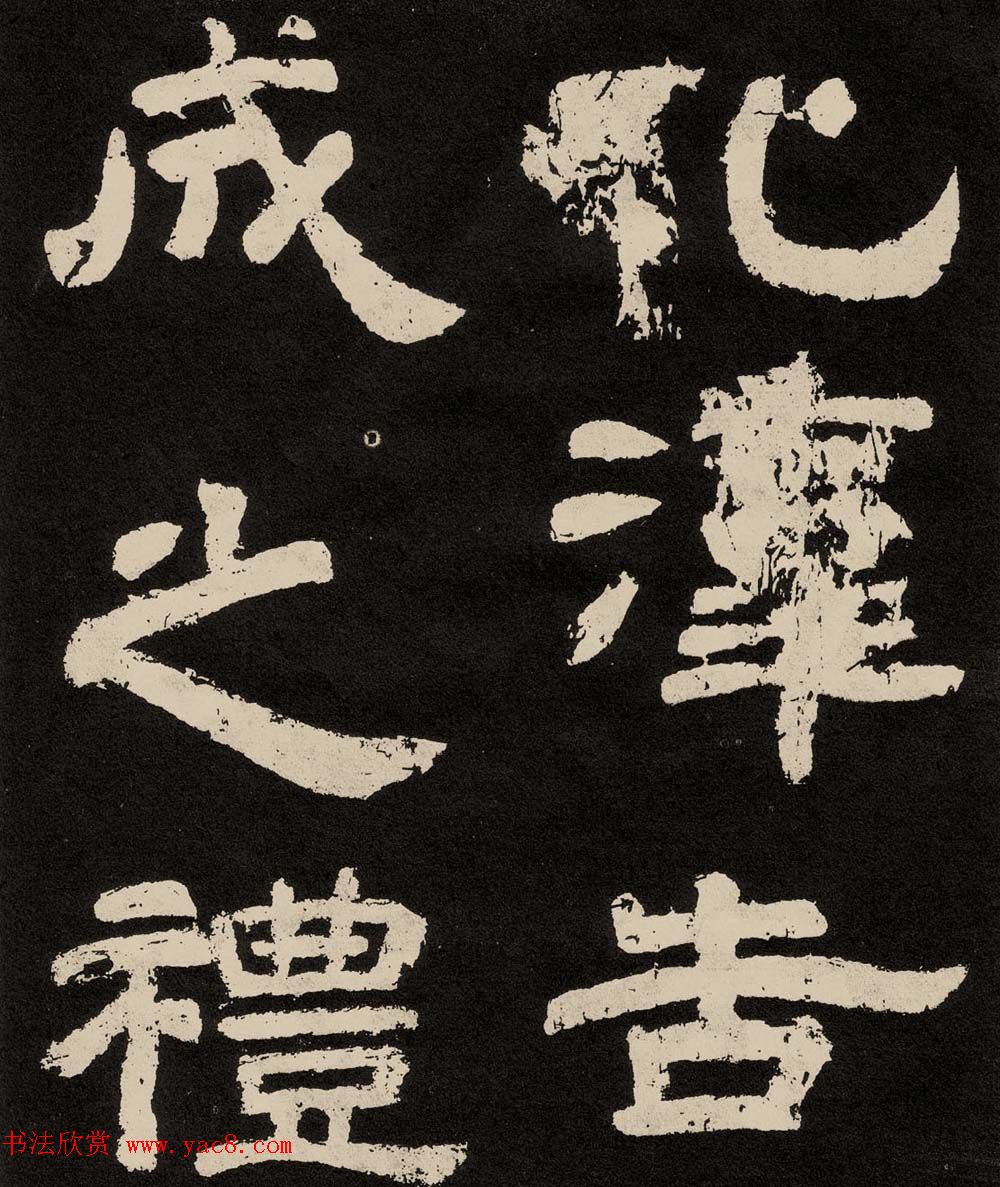 化澤告
成之禮
书法欣赏 www.yac8.com